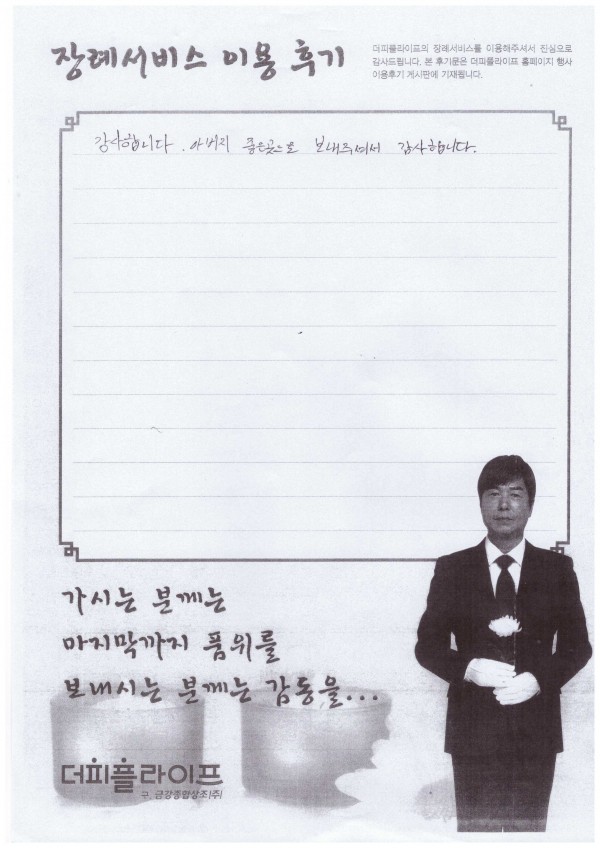 장례서비스 이용 후기
더피플라이프의 장례서비스를 이용해주셔서 진심으로
감사드립니다. 본 후기문은 더피플라이프 홈페이지 행사
이용후기 게시판에 기재됩니다.
감사합니다. 아버지 좋은곳으로 보내주셔서 감사합니다.
가시는 분께는
마지막까지 품위를
보내시는 분께는 감동을...
더피플라이프
구. 금강종합상조(주)